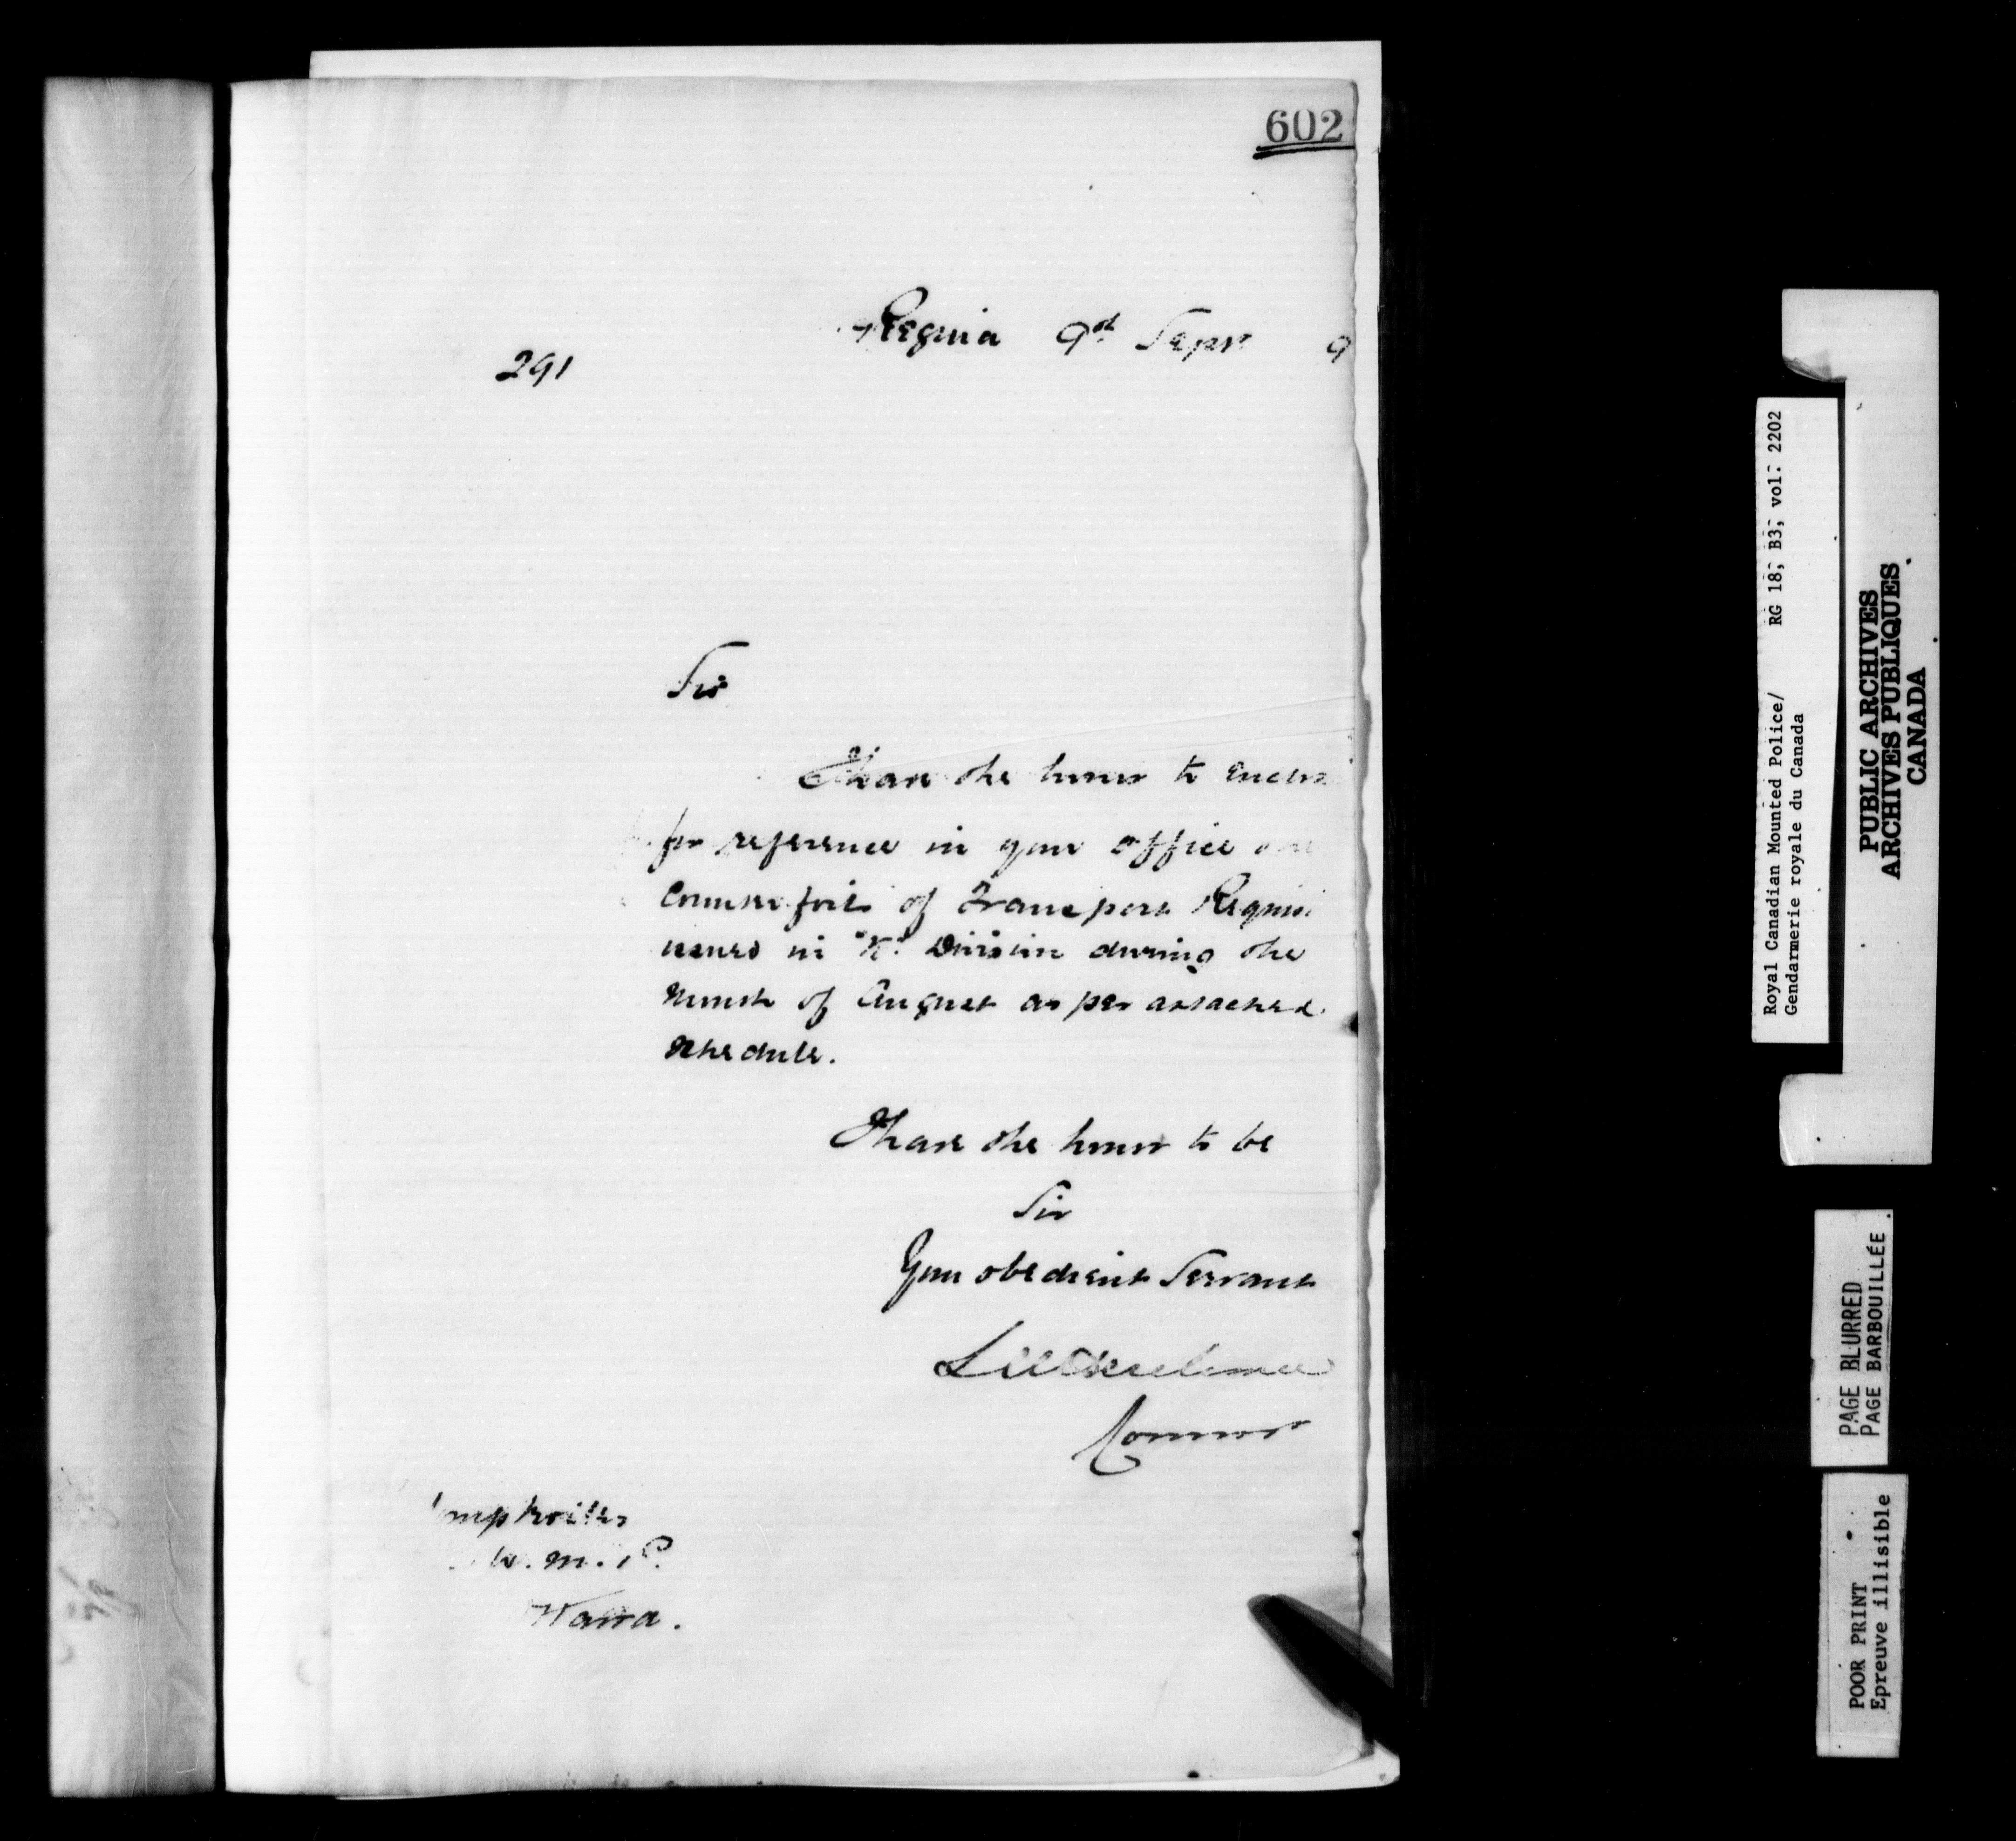 602
Regina 9th Sept 9
291
Sir
I have the honor to enclose
for reference in your office
Counterfoils of Transport Requisi
issued in "K" Division during the
month of August as per attached
schedule.
I have the honor to be
Sir
Your obedient Servant
LWHerchmer
Commr
omptroller
W. M. P.
ttawa.
Royal Canadian Mounted Police/ RG 18, B3, vol. 2202
Gendarmerie royale du Canada
PUBLIC ARCHIVES
ARCHIVES PUBLIQUES
CANADA
PAGE BLURRED
PAGE BARBOUILLÉE
POOR PRINT
Epreuve illisible